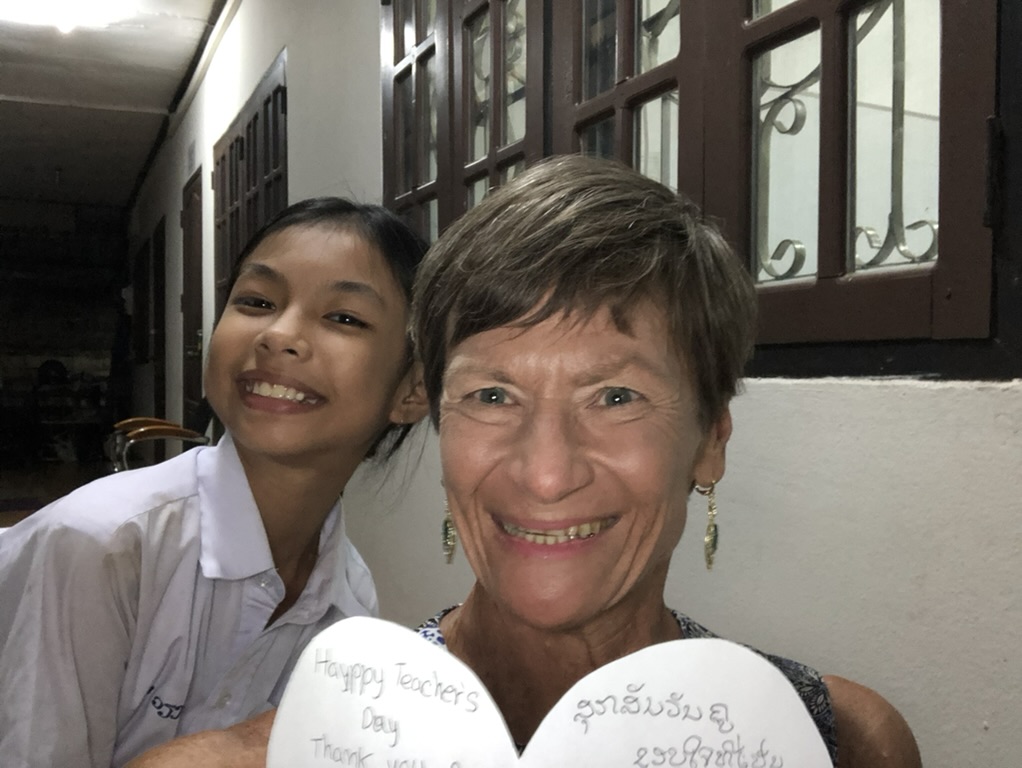 Hayppy Teacher's
Day
Thank you
ສຸກສັນວັນຄູ
ຂອບໃຈທີ່